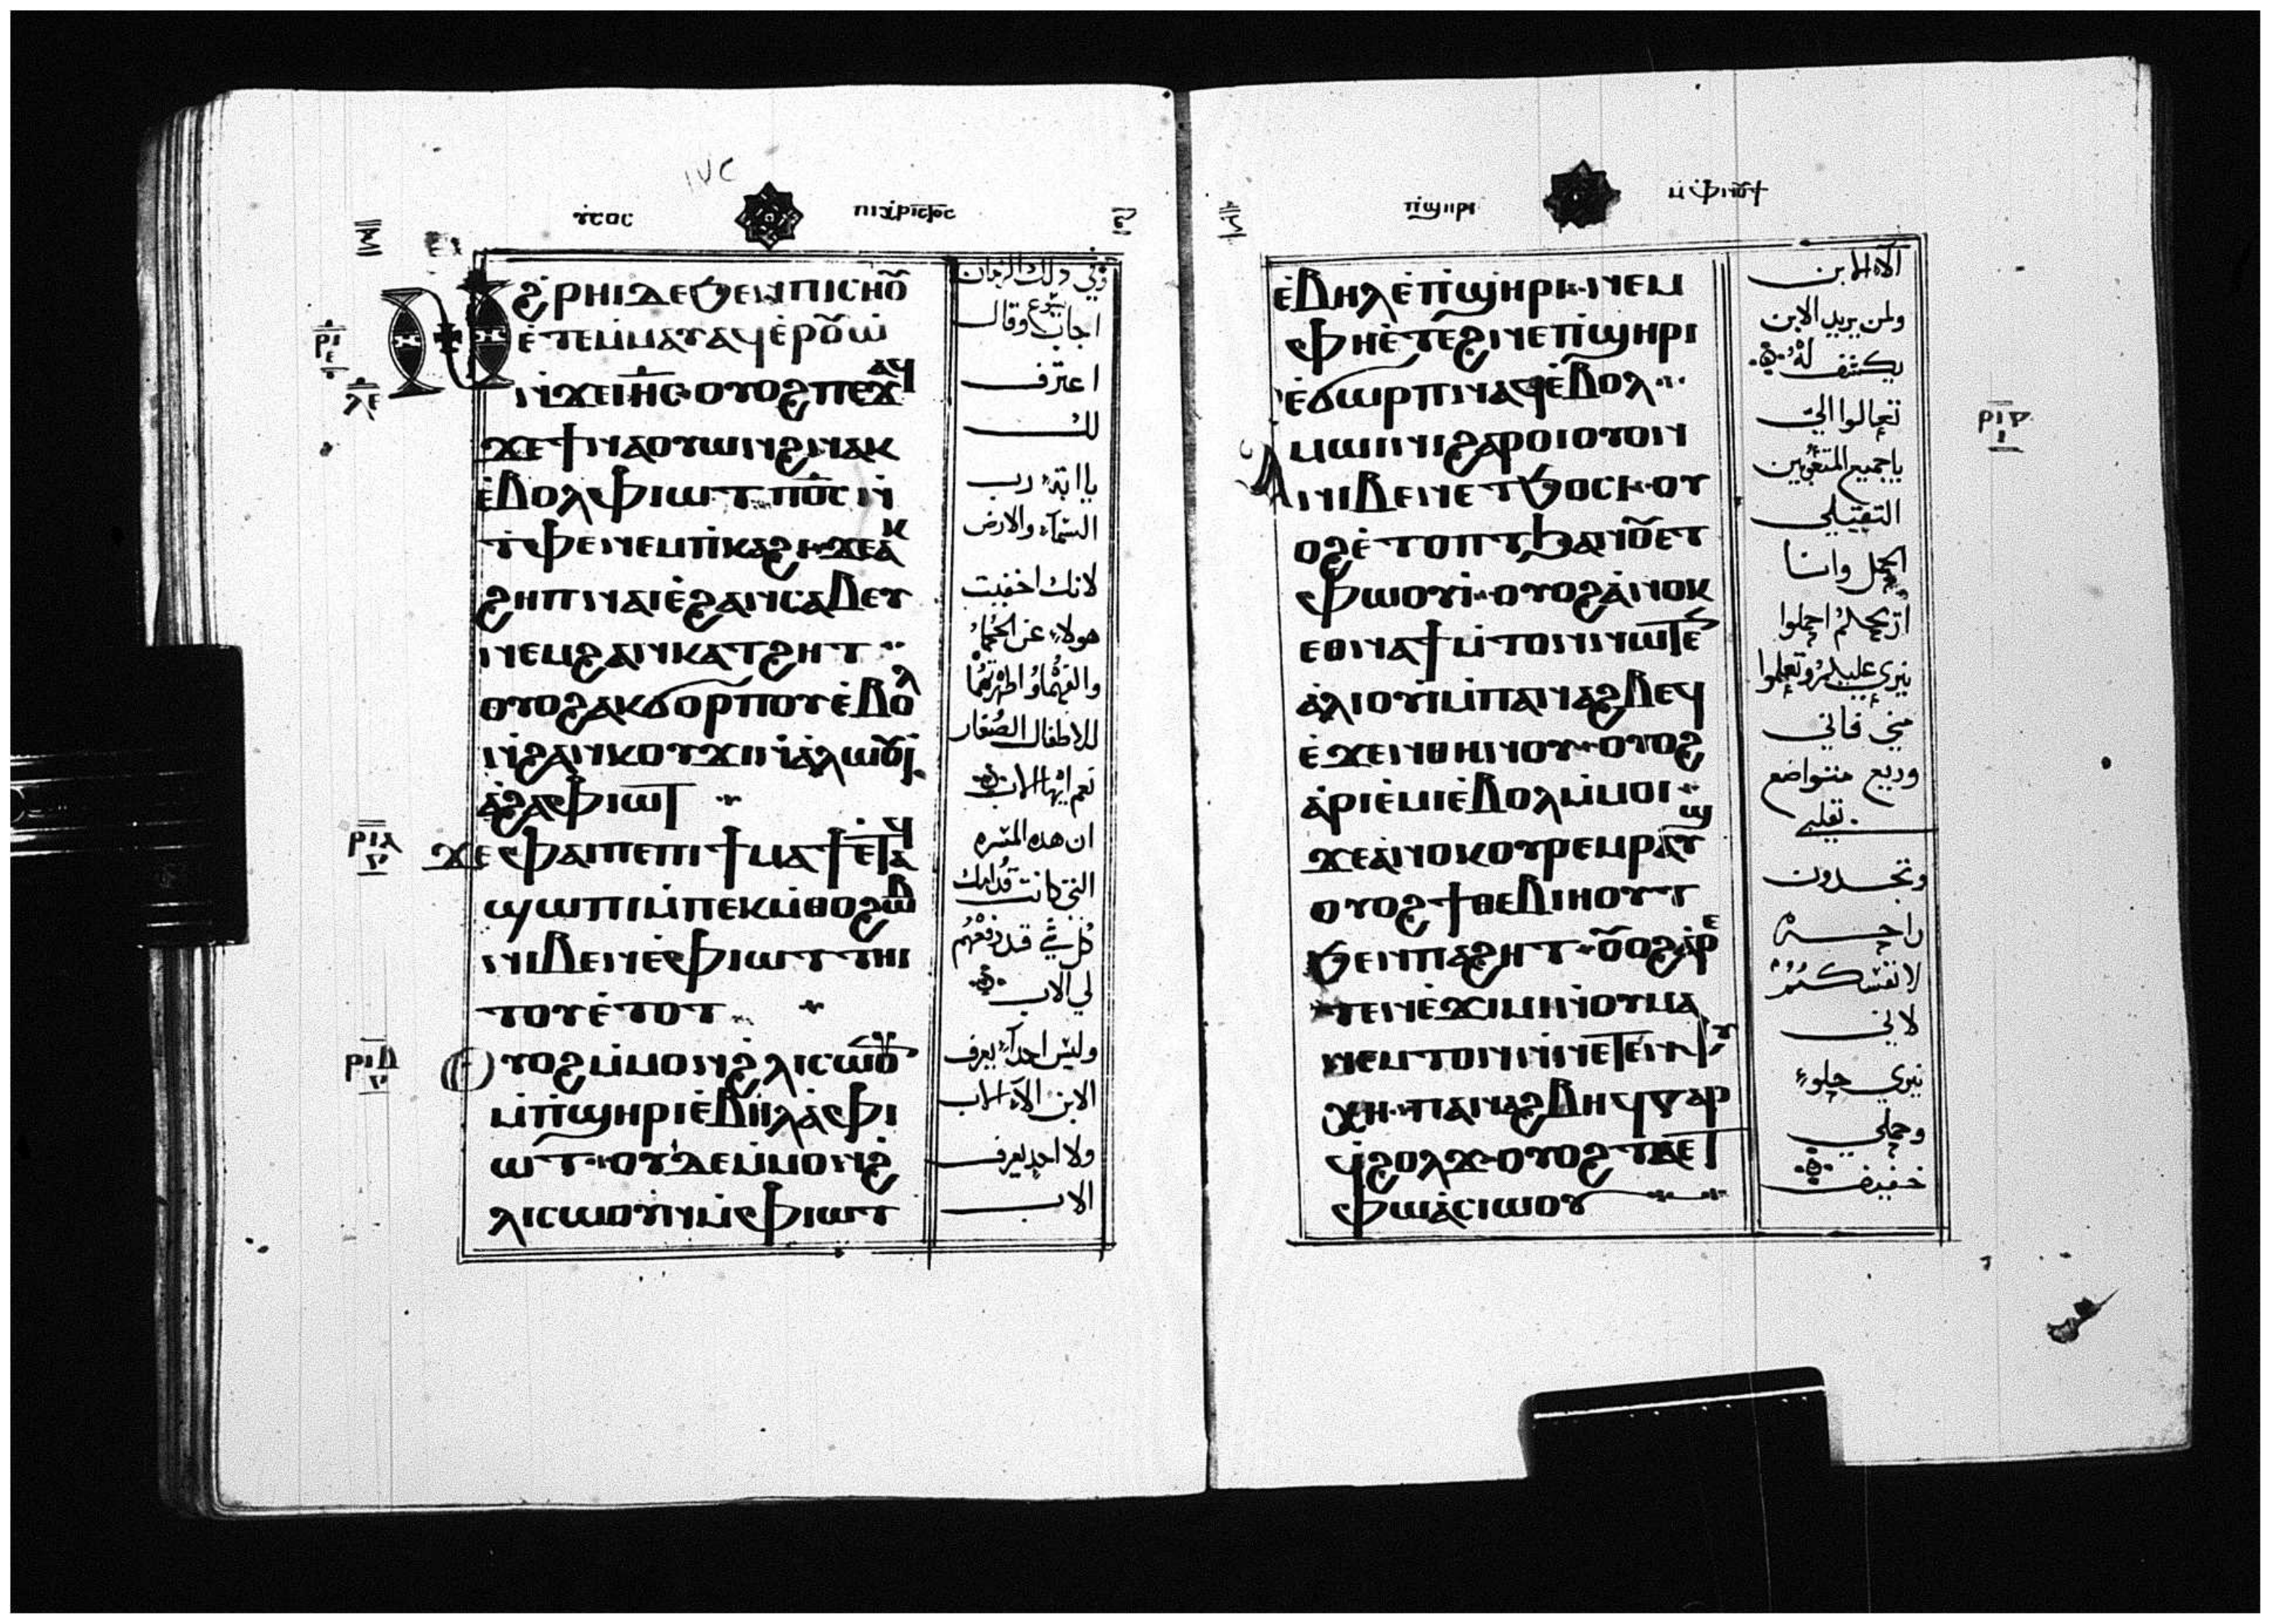 ⲓ̅ⲏ̅ⲥⲟⲥ ⲡⲓⲭ̀ⲣⲓⲥⲧⲟⲥ
Ⲛ̀ϩⲣⲏⲓ ⲇⲉ ϧⲉⲛ ⲡⲓⲥⲏⲟⲩ
ⲉ̀ⲧⲉⲙⲙⲁⲩ ⲁϥⲉ̀ⲣⲟⲩⲱ̀
ⲛ̀ϫⲉ ⲓ̅ⲏ̅ⲥ̅ ⲟⲩⲟϩ ⲡⲉϫⲁϥ
ϫⲉ ϯⲛⲁⲟⲩⲱⲛϩ ⲛⲁⲕ
ⲉ̀ⲃⲟⲗ ⲫⲓⲱⲧ ⲡⲟ̅ⲥ̅ ⲛ̀
ⲧ̀ⲫⲉ ⲛⲉⲙ ⲡ̀ⲕⲁϩⲓ ϫⲉ ⲁⲕ
ϩⲏⲡ ⲛⲁⲓ ⲉ̀ϩⲁⲛⲥⲁⲃⲉⲩ
ⲛⲉⲙ ϩⲁⲛⲕⲁⲧϩⲏⲧ
ⲟⲩⲟϩ ⲁⲕϭⲟⲣⲡⲟⲩ ⲉ̀ⲃⲟⲗ
ⲛ̀ϩⲁⲛⲕⲟⲩϫⲓ ⲛ̀ⲁ̀ⲗⲱⲟⲩⲓ̀
ⲁ̀ϩⲁ ⲫ̀ⲓⲱⲧ
ⲣⲓⲅ
ϫⲉ ⲫⲁⲓ ⲡⲉ ⲡⲓϯⲙⲁϯ ⲉⲧⲁϥ
ϣⲱⲡⲓ ⲙ̀ⲡⲉⲕⲙ̀ⲑⲟ ϩⲱⲃ
ⲛⲓⲃⲉⲛ ⲉ̀ ⲫ̀ⲓⲱⲧ ⲧⲏⲓ
ⲧⲟⲩ ⲉ̀ⲧⲟⲧ
ⲟⲩⲟϩ ⲙ̀ⲙⲟⲛ ϩⲗⲓ ⲥⲱⲟⲩⲛ
ⲙ̀ⲡ̀ϣⲏⲣⲓ ⲉ̀ⲃⲏⲗ ⲁ̀ ⲫ̀ⲓ
ⲱⲧ ⲟⲩⲇⲉ ⲙ̀ⲙⲟⲛ ϩ
ⲗⲓ ⲥⲱⲟⲩⲛ ⲙ̀ ⲫ̀ⲓⲱⲧ
وفي ذلك الزمان
اجاب يسوع وقال
اعترف
لك
يا ابة رب
السماء والارض
لانك اخفيت
هولاء عن الحكماء
والفهماء واظهرتهما
للاطفال الصغار
نعم ايها الاب
ان هذه المسره
التي كانت قدامك
كل شي قد دفعهم
لي الاب
وليس احدا يعرف
الابن الا الاب
ولا احد يعرف
الاب
ⲡ̀ϣⲏⲣⲓ ⲙ̀ⲫ̀ⲛⲟⲩϯ
ⲉ̀ⲃⲏⲗ ⲉ̀ⲡ̀ϣⲏⲣⲓ ⲛⲉⲙ
ⲫⲏ ⲉ̀ⲧⲉϩⲛⲉ ⲡ̀ϣⲏⲣⲓ
ⲉ̀ϭⲱⲣⲡ ⲛⲁϥ ⲉ̀ⲃⲟⲗ
Ⲁⲙⲱⲓⲛⲓ ϩⲁⲣⲟⲓ ⲟⲩⲟⲛ
ⲛⲓⲃⲉⲛ ⲉⲧϧⲟⲥⲓ ⲟⲩ
ⲟϩ ⲉ̀ⲧⲟⲡⲧ ϧⲁ ⲛⲟⲩⲉⲧ
ⲫⲱⲟⲩⲓ̀ ⲟⲩⲟϩ ⲁ̀ⲛⲟⲕ
ⲉⲑⲛⲁϯ ⲙ̀ⲧⲟⲛ ⲛⲱⲧⲉⲛ
ⲁ̀ⲗⲓⲟⲩⲓ̀ ⲙ̀ⲡⲁⲛⲁϩⲃⲉϥ
ⲉ̀ϫⲉⲛ ⲑⲏⲛⲟⲩ ⲟⲩⲟϩ
ⲁ̀ⲣⲓⲉ̀ⲙⲓ ⲉ̀ⲃⲟⲗ ⲙ̀ⲙⲟⲓ
ϫⲉ ⲁ̀ⲛⲟⲕ ⲟⲩⲣⲉⲙⲣⲁⲩϣ
ⲟⲩⲟϩ ϯⲑⲉⲃⲓⲏⲟⲩⲧ
ϧⲉⲛ ⲡⲁϩⲏⲧ ⲟⲩⲟϩ ⲉⲣⲉ
ⲧⲉⲛⲉ̀ϫⲓⲙⲓ ⲛ̀ⲟⲩⲙⲁ
ⲛⲉⲙⲧⲟⲛ ⲛ̀ⲛⲉⲧⲉⲛⲯⲩ
ⲭⲏ ⲡⲁⲛⲁϩⲃⲏϥ ⲅⲁⲣ
ϥ̀ϩⲟⲗϫ ⲟⲩⲟϩ ⲧⲁⲉⲧ
ⲫⲱ ⲁ̀ⲥⲓⲱⲟⲩ
الا الابن
ولمن يريد الابن
يكشف له
تعالوا الي
يا جميع المتعوبين
الثقيلي
الحمل وانا
اريحكم احملوا
نيري عليكم وتعلموا
مني فاني
وديع متواضع
بقلبي
وتجدون
راحة
لانفسكم
لاني
نيري حلو
وحملي
خفيف